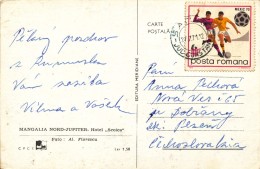 CARTE POSTALĂ
MEXICO 70
posta romana
Pěkný pozdrav
z Rumunska
Vám zasílá
Vilma a Vašek
Paní
Anna
Nová Ves č. 65
p. Dobřany
ok. Plzeň
Československo
EDITURA MERIDIANE
MANGALIA NORD-JUPITER: Hotel „Scoica”
Foto: Al. Florescu